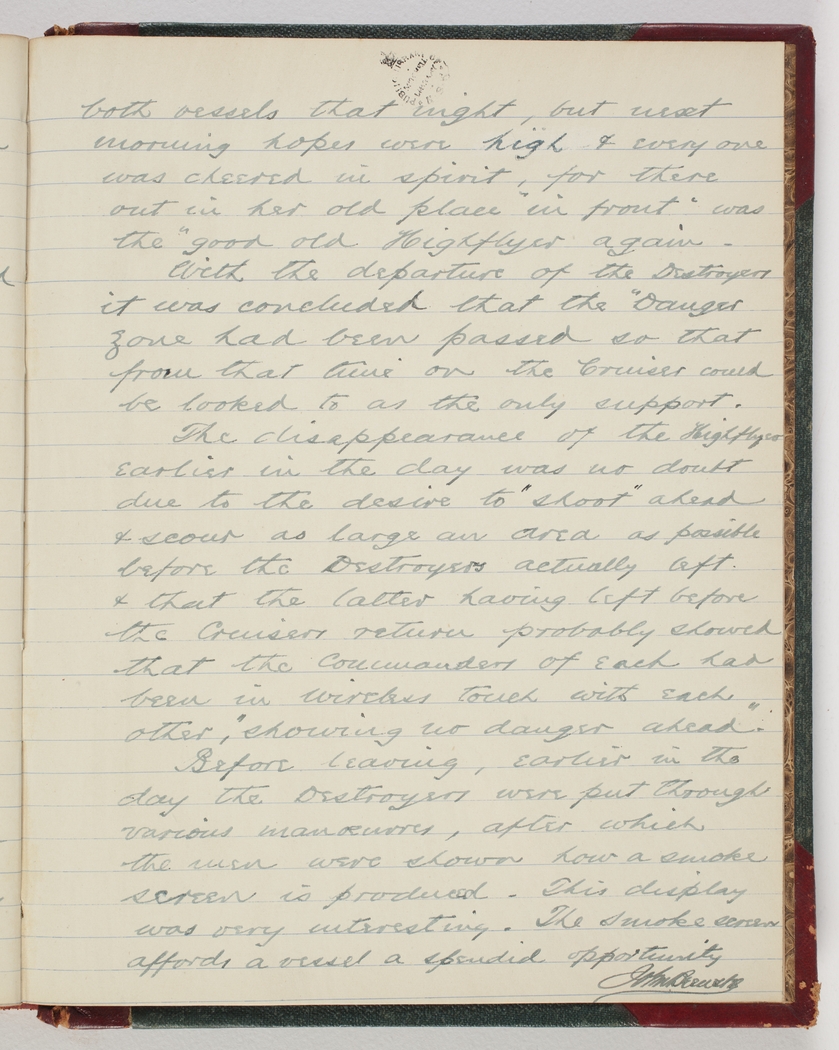 both vessels that night, but next
morning hopes were high & every one
was cheered in spirit, for there
out in her old place "in front" was
the "good old Highflyer again -
With the departure of the Destroyers
it was concluded that the "Danger
zone had been passed so that
from that time on the Cruiser could
be looked to as the only support.
The disappearance of the Highflyer
earlier in the day was no doubt
due to the desire to "shoot" ahead
& scour as large an area as possible
before the Destroyers actually left.
& that the latter having left before
the Cruisers return probably showed
that the Commanders of each had
been in wireless touch with each
other, "showing no danger ahead".
Before leaving, earlier in the
day the Destroyers were put through
various manœuvres, after which
the men were shown how a smoke
screen is produced - This display
was very interesting. The smoke screen
affords a vessel a splendid opportunity